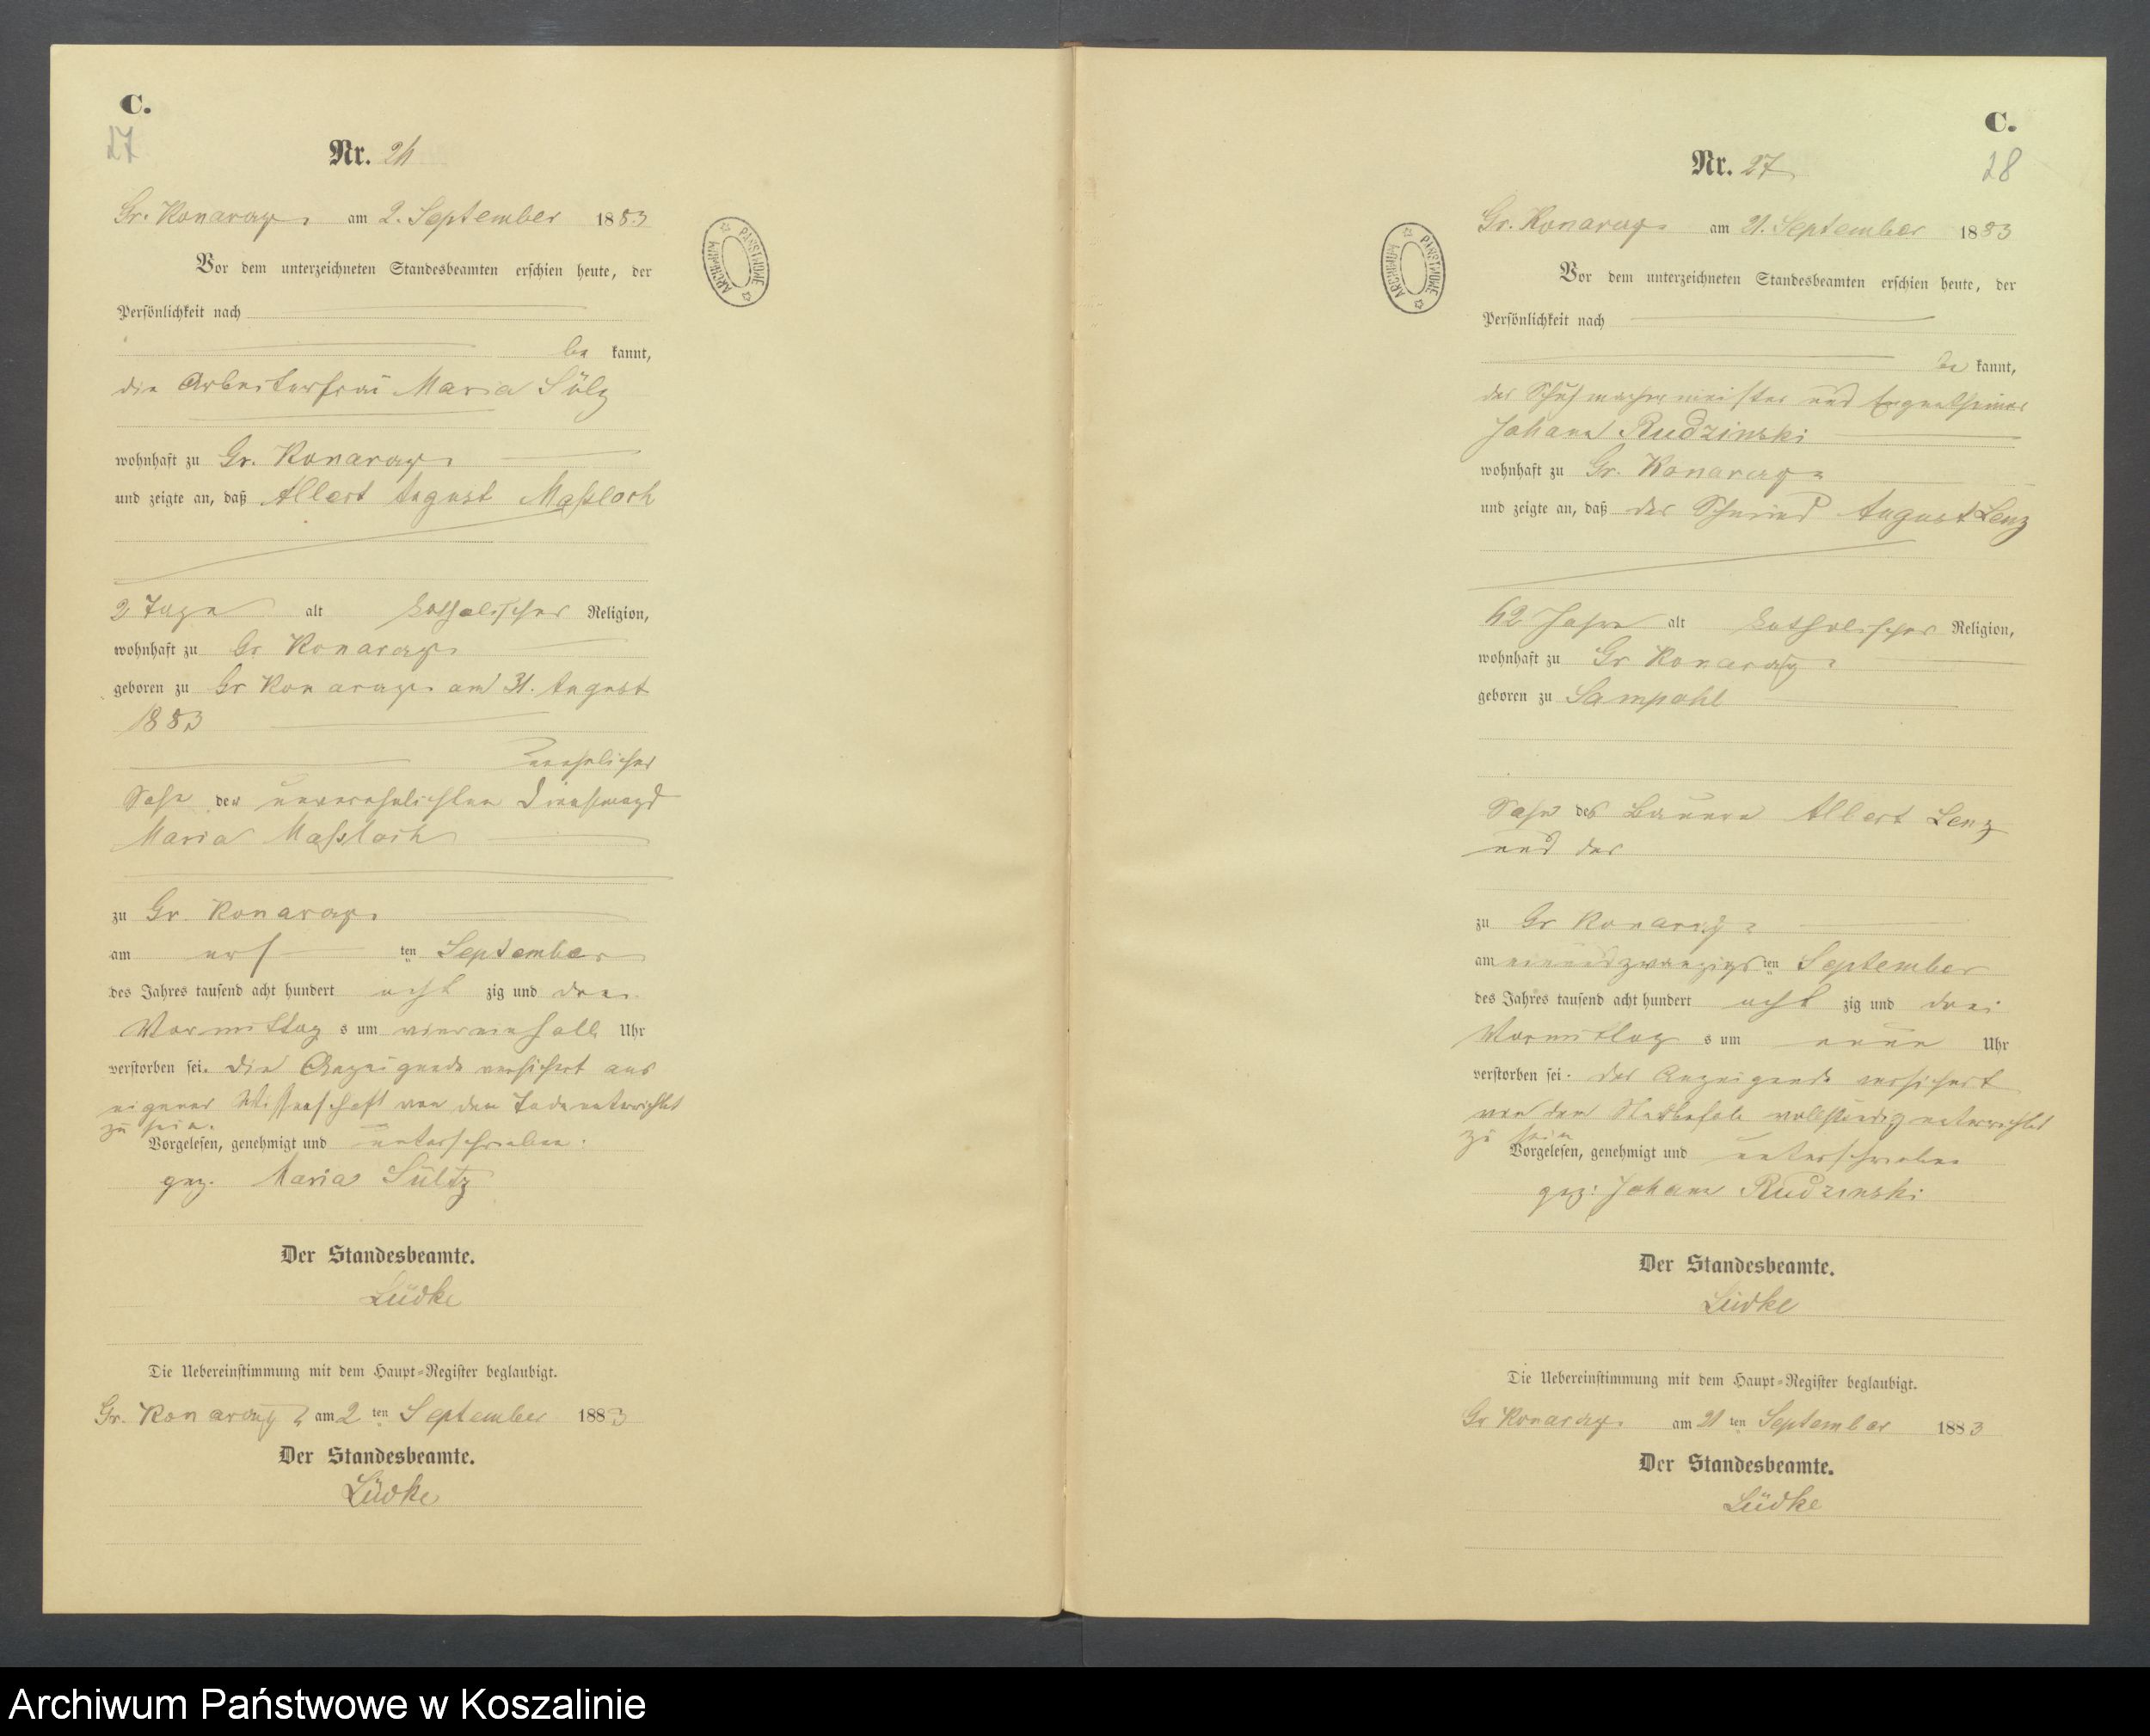 C.
27
Nr. 26
Gr. Konarczyn am 2. September 1883
Vor dem unterzeichneten Standesbeamten erschien heute, der
Persönlichkeit nach
be kannt,
die Arbeiterfrau Maria Sülz
wohnhaft zu Gr. Konarczyn
und zeigte an, daß Albert August
2 Tage alt katholischer Religion,
wohnhaft zu Gr Konarczyn
geboren zu Gr Konarczyn am 31. August
1883
unehelicher
Sohn der unverehelichten Dienstmagd
Maria
zu Gr. Konarczyn
am ersten September
des Jahres tausend acht hundert acht zig und drei
Vormittag s um Uhr
verstorben sei. Die Anzeigende versichert aus
eigener Wissenschaft von dem Tode unterrichtet
zu sein.
Vorgelesen, genehmigt und unterschrieben.
gez. Maria Sültz
Der Standesbeamte.
Lüdke
Die Uebereinstimmung mit dem Haupt-Register beglaubigt.
Gr. Konarczyn am 2 ten September 1883
Der Standesbeamte.
Lüdke
ARCHIWUM PAŃSTWOWE
C.
28
Nr. 27
Gr. Konarczyn am 21. September 1883
Vor dem unterzeichneten Standesbeamten erschien heute, der
Persönlichkeit nach
be kannt,
der Schuhmachermeister und Eigenthümer
Johann Rudzinski
wohnhaft zu Gr. Konarczyn
und zeigte an, daß der Schmied August Lenz
62 Jahre alt katholischer Religion,
wohnhaft zu Gr Konarczyn
geboren zu Sampohl
Sohn des Bauern Albert Lenz
und der
zu Gr Konarczyn
am einundzwanzigsten September
des Jahres tausend acht hundert acht zig und drei
Vormittag s um neun Uhr
verstorben sei. Der Anzeigende versichert
von dem Sterbefalle vollständig unterrichtet
zu sein
Vorgelesen, genehmigt und unterschrieben
gez: Johann Rudzinski
Der Standesbeamte.
Lüdke
Die Uebereinstimmung mit dem Haupt-Register beglaubigt.
Gr Konarczyn am 21 ten September 1883
Der Standesbeamte.
Lüdke
ARCHIWUM PAŃSTWOWE
Archiwum Państwowe w Koszalinie